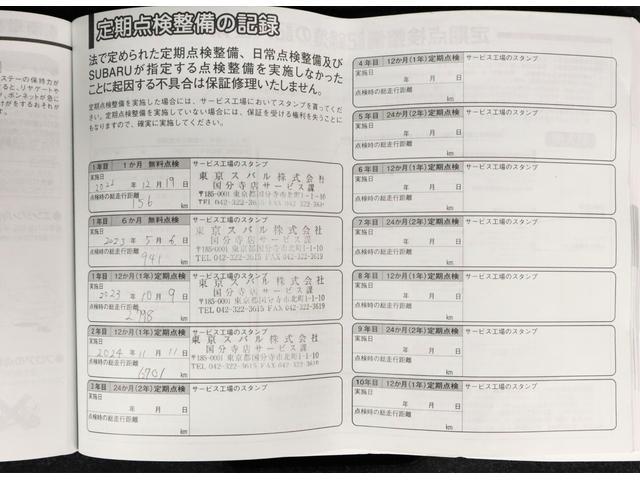 定期点検整備の記録
法で定められた定期点検整備、日常点検整備及び
SUBARUが指定する点検整備を実施しなかった
ことに起因する不具合は保証修理いたしません。
定期点検整備を実施した場合には、サービス工場においてスタンプを貰ってくだ
さい。定期点検整備を実施していない場合には、保証を受ける権利を失うことに
もなりますので、確実に実施してください。
1年目 1か月 無料点検 サービス工場のスタンプ
実施日
2022 年 12 月 19 日
点検時の総走行距離
156 km
東京スバル株式会社
国分寺店サービス課
〒185-0001 東京都国分寺市北町1-1-10
TEL 042-322-3615 FAX 042-322-3619
1年目 6か月 無料点検 サービス工場のスタンプ
実施日
2023 年 5 月 6 日
点検時の総走行距離
941 km
東京スバル株式会社
国分寺店サービス課
〒185-0001 東京都国分寺市北町1-1-10
TEL 042-322-3615 FAX 042-322-3619
1年目 12か月(1年)定期点検 サービス工場のスタンプ
実施日
2023 年 10 月 9 日
点検時の総走行距離
2798 km
東京スバル株式会社
国分寺店サービス課
〒185-0001 東京都国分寺市北町1-1-10
TEL 042-322-3615 FAX 042-322-3619
2年目 12か月(1年)定期点検 サービス工場のスタンプ
実施日
2024 年 11 月 11 日
点検時の総走行距離
6701 km
東京スバル株式会社
国分寺店サービス課
〒185-0001 東京都国分寺市北町1-1-10
TEL 042-322-3615 FAX 042-322-3619
3年目 24か月(2年)定期点検 サービス工場のスタンプ
実施日
年 月 日
点検時の総走行距離
km
4年目 12か月(1年)定期点検 サービス工場のスタンプ
実施日
年 月 日
点検時の総走行距離
km
5年目 24か月(2年)定期点検 サービス工場のスタンプ
実施日
年 月 日
点検時の総走行距離
km
6年目 12か月(1年)定期点検 サービス工場のスタンプ
実施日
年 月 日
点検時の総走行距離
km
7年目 24か月(2年)定期点検 サービス工場のスタンプ
実施日
年 月 日
点検時の総走行距離
km
8年目 12か月(1年)定期点検 サービス工場のスタンプ
実施日
年 月 日
点検時の総走行距離
km
9年目 24か月(2年)定期点検 サービス工場のスタンプ
実施日
年 月 日
点検時の総走行距離
km
10年目 12か月(1年)定期点検 サービス工場のスタンプ
実施日
年 月 日
点検時の総走行距離
km